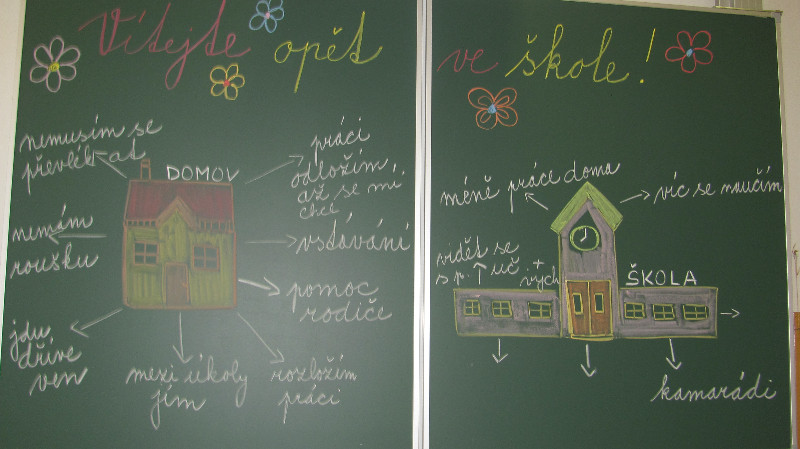 Vítejte opět ve škole!
nemusím se
převlékat
DOMOV
nemám
roušku
jdu
dříve
ven
mezi úkoly
jím
rozložím
práci
pomoc
rodiče
vstávání
práci
odložím,
až se mi
chce
méně práce doma
víc se naučím
vidět se
s p. uč
+
vých
ŠKOLA
kamarádi